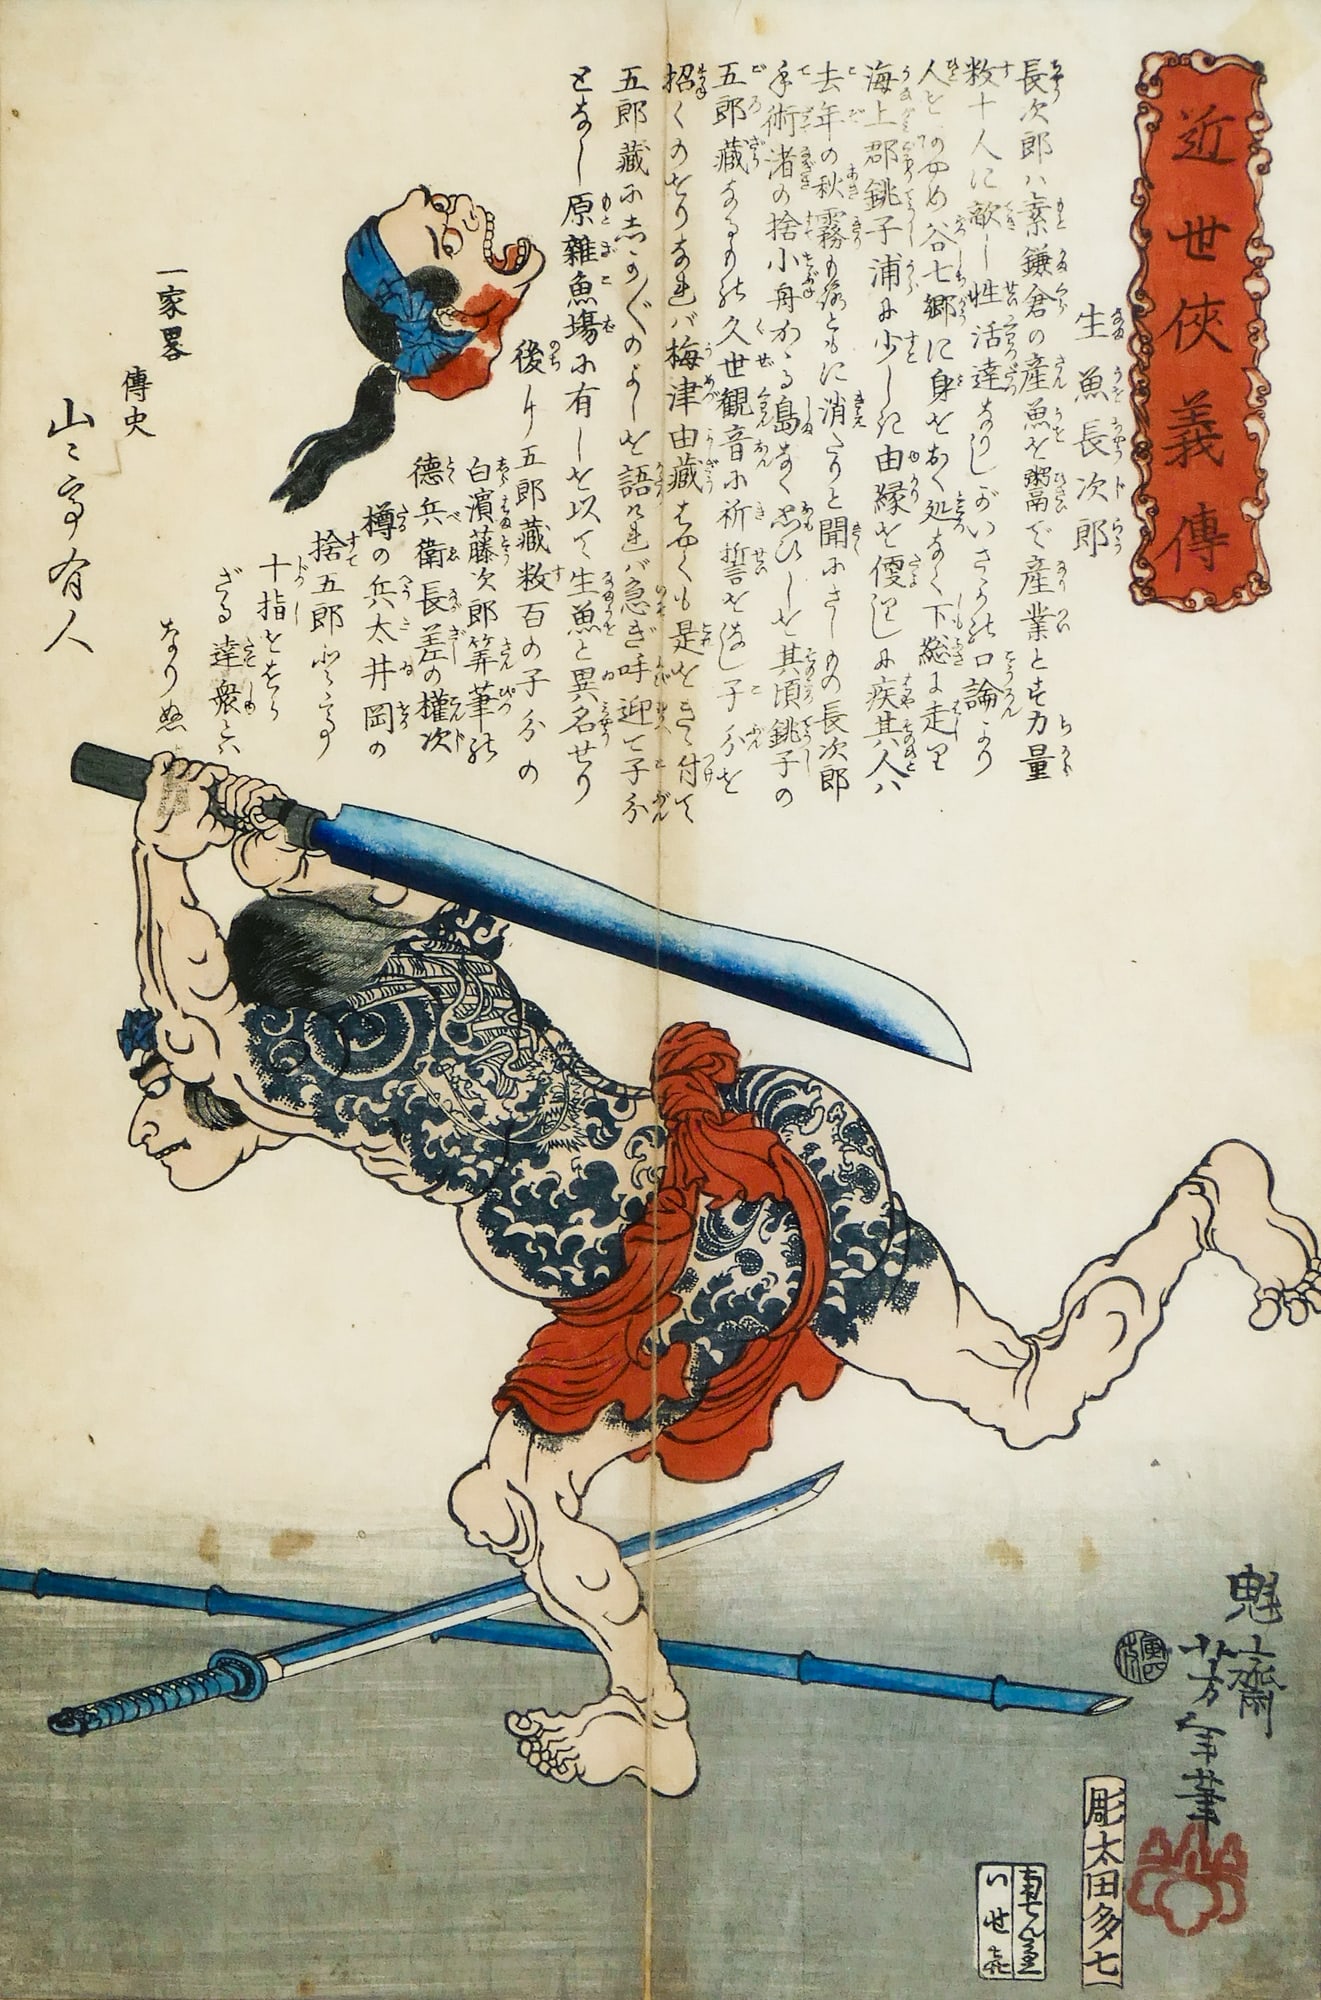 近世侠義傳
生魚長次郎
長次郎ハ素鎌倉の産魚を鬻で産業とす力量
数十人に敵し性活達なりしがいさゝか口論より
人をあやめ谷七郷に身をおく処なく下総に走り
海上郡銚子浦に少しに由縁を便
去年の秋霧
手術渚の捨小舟かゝる島なく思ひしを其頃銚子の
五郎蔵なるもの久世観音に祈誓を
招くのをりなれバ梅津由蔵はやくも是をきゝ付て
五郎蔵にしか〲のよしを語れバ急ぎ呼迎て子分
となし原雑魚場に有しを以て生魚と異名せり
後り五郎蔵数百の子分の
白濱藤次郎筭筆の
徳兵衛長差の權次
樽の兵太井岡の
捨五郎
十指を
ざる達衆
なりぬ
一家畧
傳史
山々亭有人
魁斎
芳年筆
彫太田多七
いせ㐂